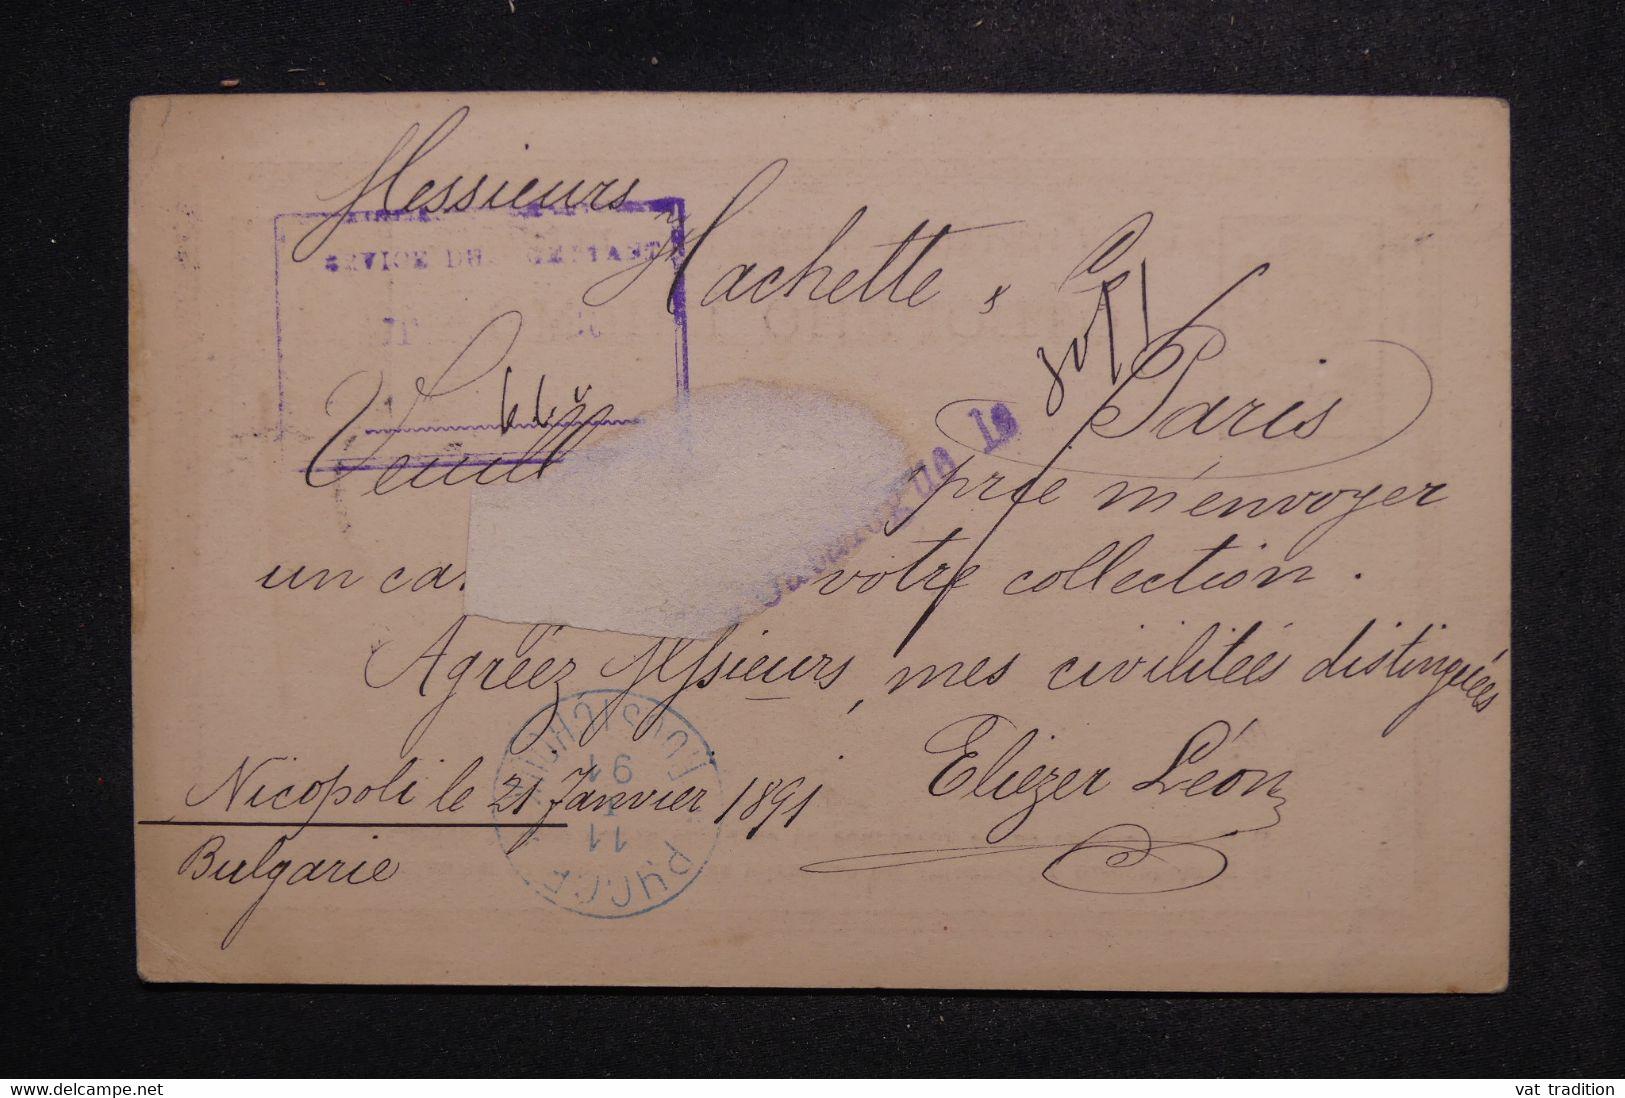 Messieurs
Hachette & Ce
Paris
Veuill prie m'envoyer
un ca votre collection.
Agréez Messieurs, mes civilitées distinguées
Eliezer Léon
Nicopoli le 21 Janvier 1891
Bulgarie
le
РУССЕ
11
I
91
RUSTCHUK
delcampe.net
vat tradition